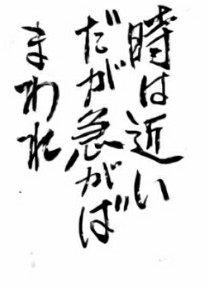 時は近い
だが急がば
まわれ